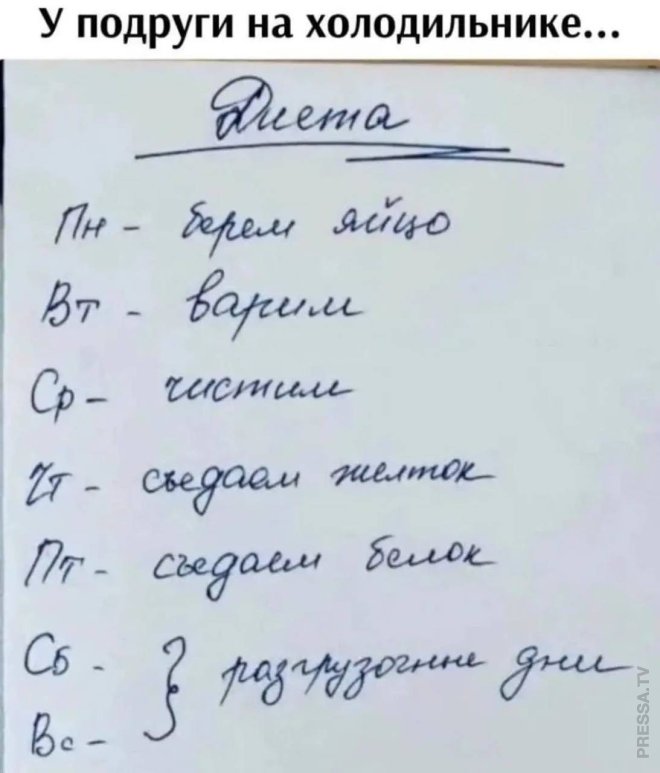 У подруги на холодильнике...
Диета
Пн - берем яйцо
Вт - варим
Ср - чистим
Чт - съедаем желток
Пт - съедаем белок
Сб - } разгрузочные дни
Вс -
PRESSA.TV